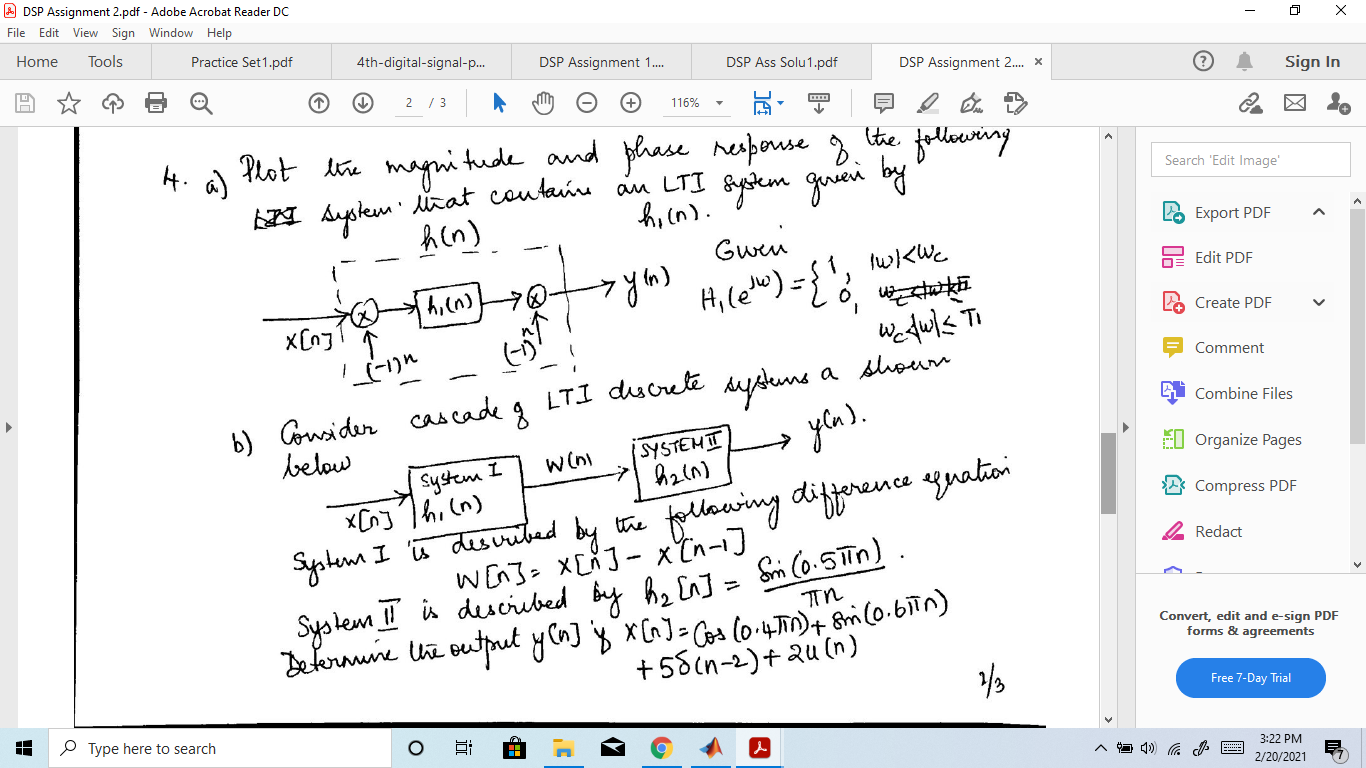 DSP Assignment 2.pdf - Adobe Acrobat Reader DC
File Edit View Sign Window Help
Home Tools Practice Set1.pdf 4th-digital-signal-p... DSP Assignment 1.... DSP Ass Solu1.pdf DSP Assignment 2.... × Sign In
2 / 3 116%
4. a) Plot the magnitude and phase response of the following
LTI system that contains an LTI system given by
h(n) h₁(n).
Given
H₁(e^jw) = { 1, |w|<wc
0, wc<|w|≤π
wc<|w|≤π
x[n] × h₁(n) × y(n)
(-1)^n (-1)^n
b) Consider cascade of LTI discrete systems a shown
below
x[n] System I h₁(n) w(n) SYSTEM II h₂(n) y(n).
System I is described by the following difference equation
w[n] = x[n] - x[n-1]
System II is described by h₂[n] = sin(0.5πn)/πn .
Determine the output y(n) if x[n] = cos(0.4πn) + sin(0.6πn)
+ 5δ(n-2) + 2u(n)
2/3
Search 'Edit Image'
Export PDF
Edit PDF
Create PDF
Comment
Combine Files
Organize Pages
Compress PDF
Redact
Convert, edit and e-sign PDF
forms & agreements
Free 7-Day Trial
Type here to search
3:22 PM
2/20/2021
7